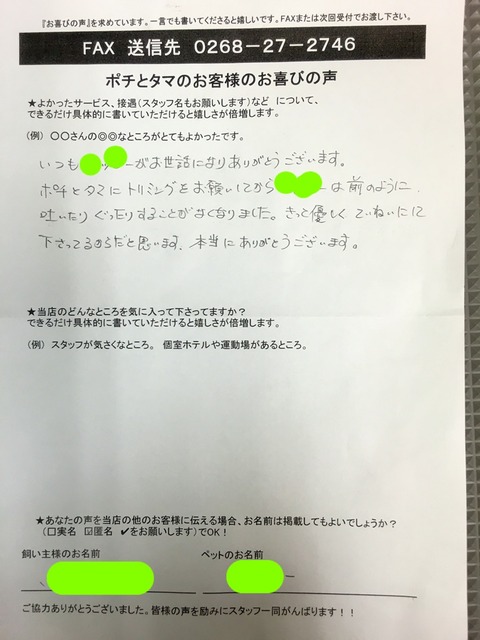 『お喜びの声』を求めています。一言でも書いてくださると嬉しいです。FAXまたは次回受付でお渡し下さい。
FAX 送信先 0268-27-2746
ポチとタマのお客様のお喜びの声
★よかったサービス、接遇(スタッフ名もお願いします)など について、
できるだけ具体的に書いていただけると嬉しさが倍増します。
(例) 〇〇さんの◎◎なところがとてもよかったです。
いつも ッ ーがお世話になりありがとうございます。
ポチとタマにトリミングをお願いしてから ーは前のように、
吐いたりぐったりすることがなくなりました。きって優しくていねいにして
下さってるからだと思います。本当にありがとうございます。
★当店のどんなところを気に入って下さってますか?
できるだけ具体的に書いていただけると嬉しさが倍増します。
(例) スタッフが気さくなところ。 個室ホテルや運動場があるところ。
★あなたの声を当店の他のお客様に伝える場合、お名前は掲載してもよいでしょうか?
(□実名 ☑匿名 ✔をお願いします)でOK!
飼い主様のお名前 ペットのお名前
ご協力ありがとうございました。皆様の声を励みにスタッフ一同がんばります!!